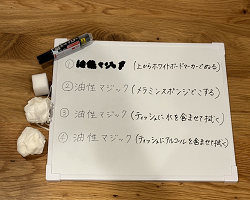 ① 油性マジック (上からホワイトボードマーカーでぬる)
② 油性マジック (メラミンスポンジでこする)
③ 油性マジック (ティッシュに水を含ませて拭く)
④ 油性マジック (ティッシュにアルコールを含ませて拭く)